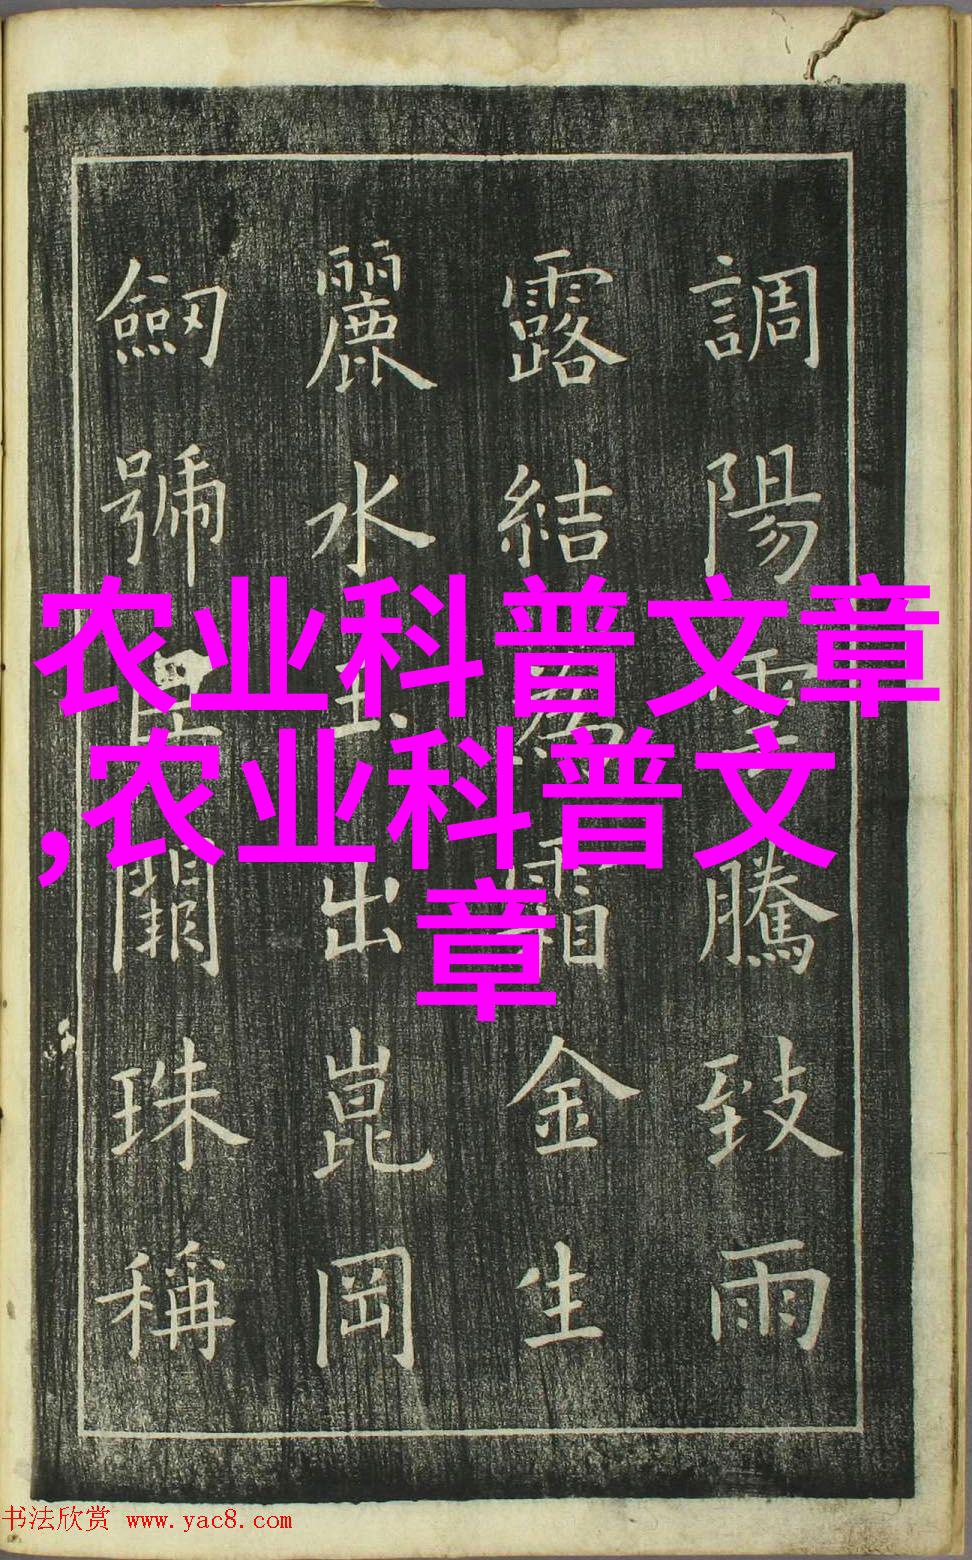 調陽雲騰致雨
露結為霜金生
麗水玉出崑岡
劒號巨闕珠稱
农业科普文章
,农业科普文
章
书法欣赏 www.yac8.com